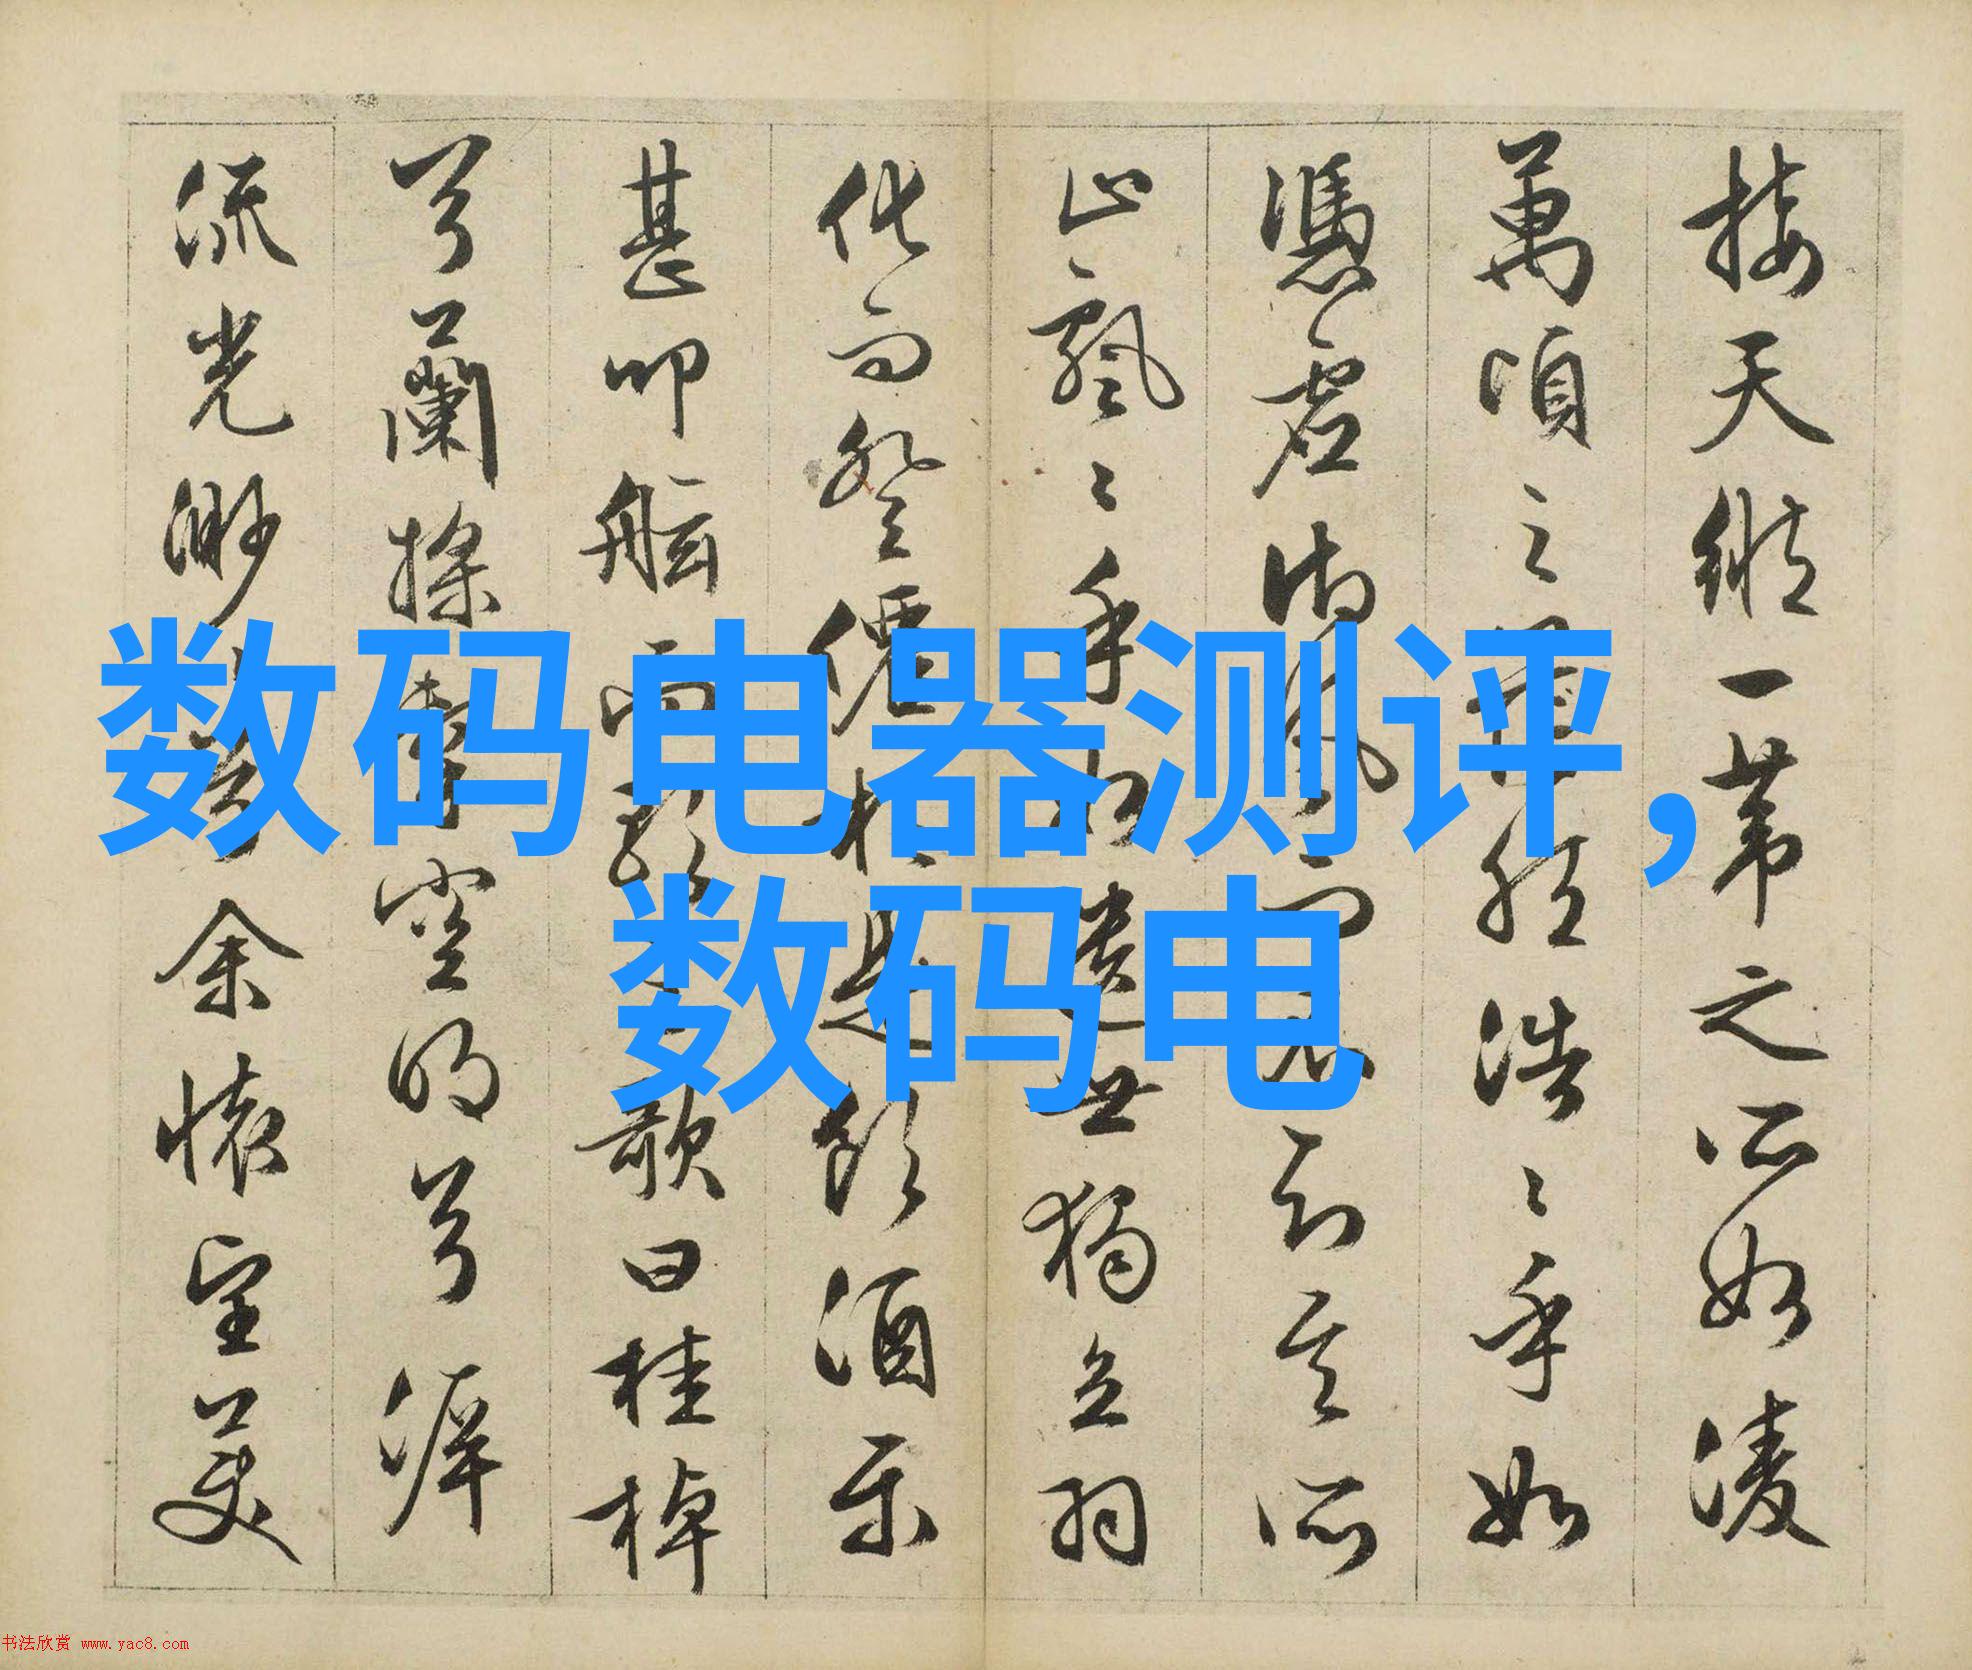 接天縱一葦之所如淩
萬頃之茫然浩〻乎如
憑虛御風而不知其所
止飄〻乎如遺世獨立羽
化而登僊於是飲酒樂
甚叩舷而歌之歌曰桂棹
兮蘭槳擊空明兮泝
流光渺〻兮余懷望美
数码电器测评，
数码电
书法欣赏 www.yac8.com